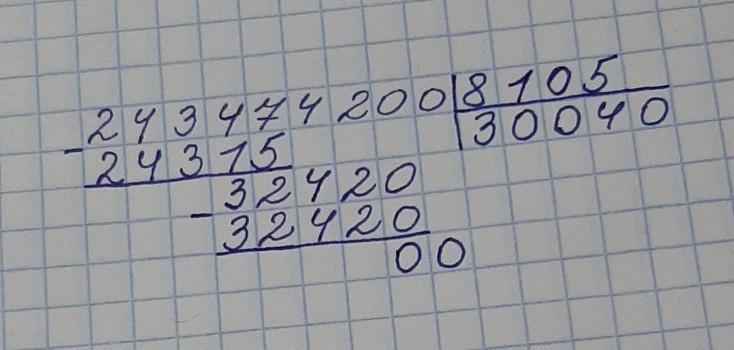 243474200 8105
- 24315 30040
32420
- 32420
00